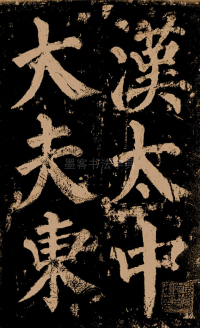 漢太中
大夫東
墨客书法